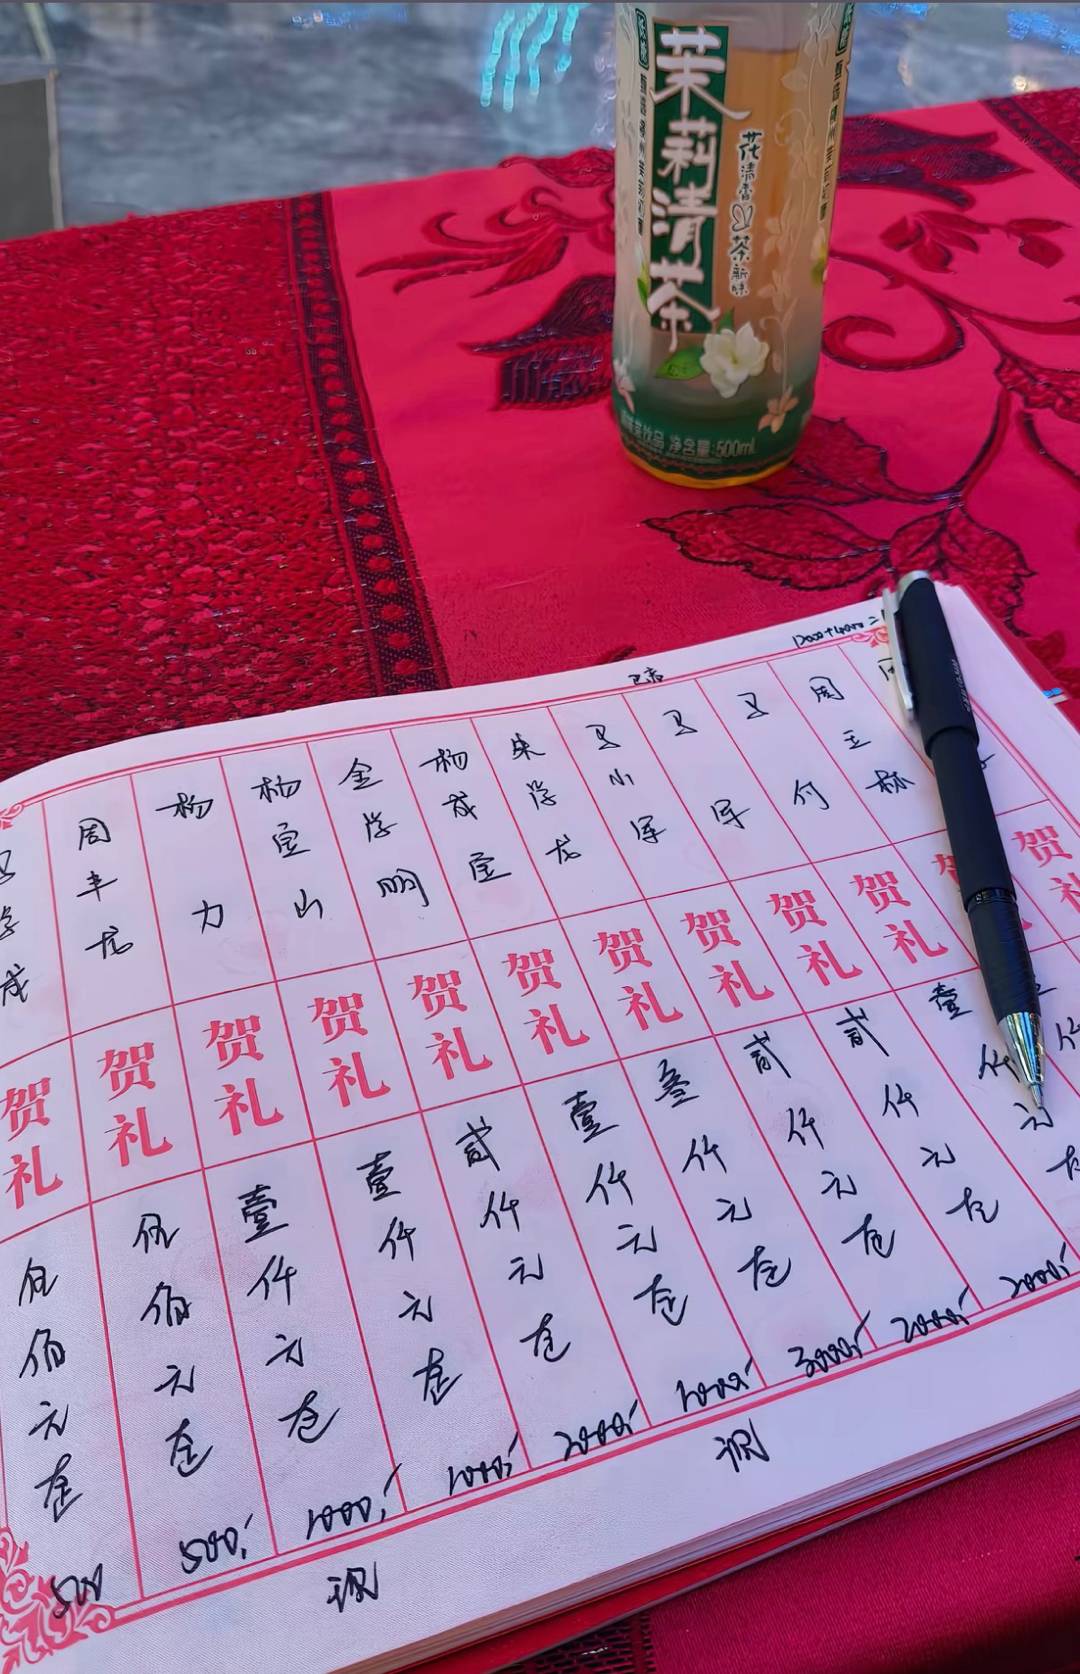 茉莉清茶
花清香 茶新味
净含量:500ml
周
周玉林
贺礼
马付
贺礼
壹仟元
马军
贺礼
贰仟元整
2000
马小军
贺礼
贰仟元整
2000
朱学龙
贺礼
叁仟元整
3000
杨成宝
贺礼
壹仟元整
1000
现
金学明
贺礼
贰仟元整
2000
杨宝山
贺礼
壹仟元整
1000
杨力
贺礼
壹仟元整
1000
现
周丰龙
贺礼
伍佰元整
500
马学成
贺礼
伍佰元整
500